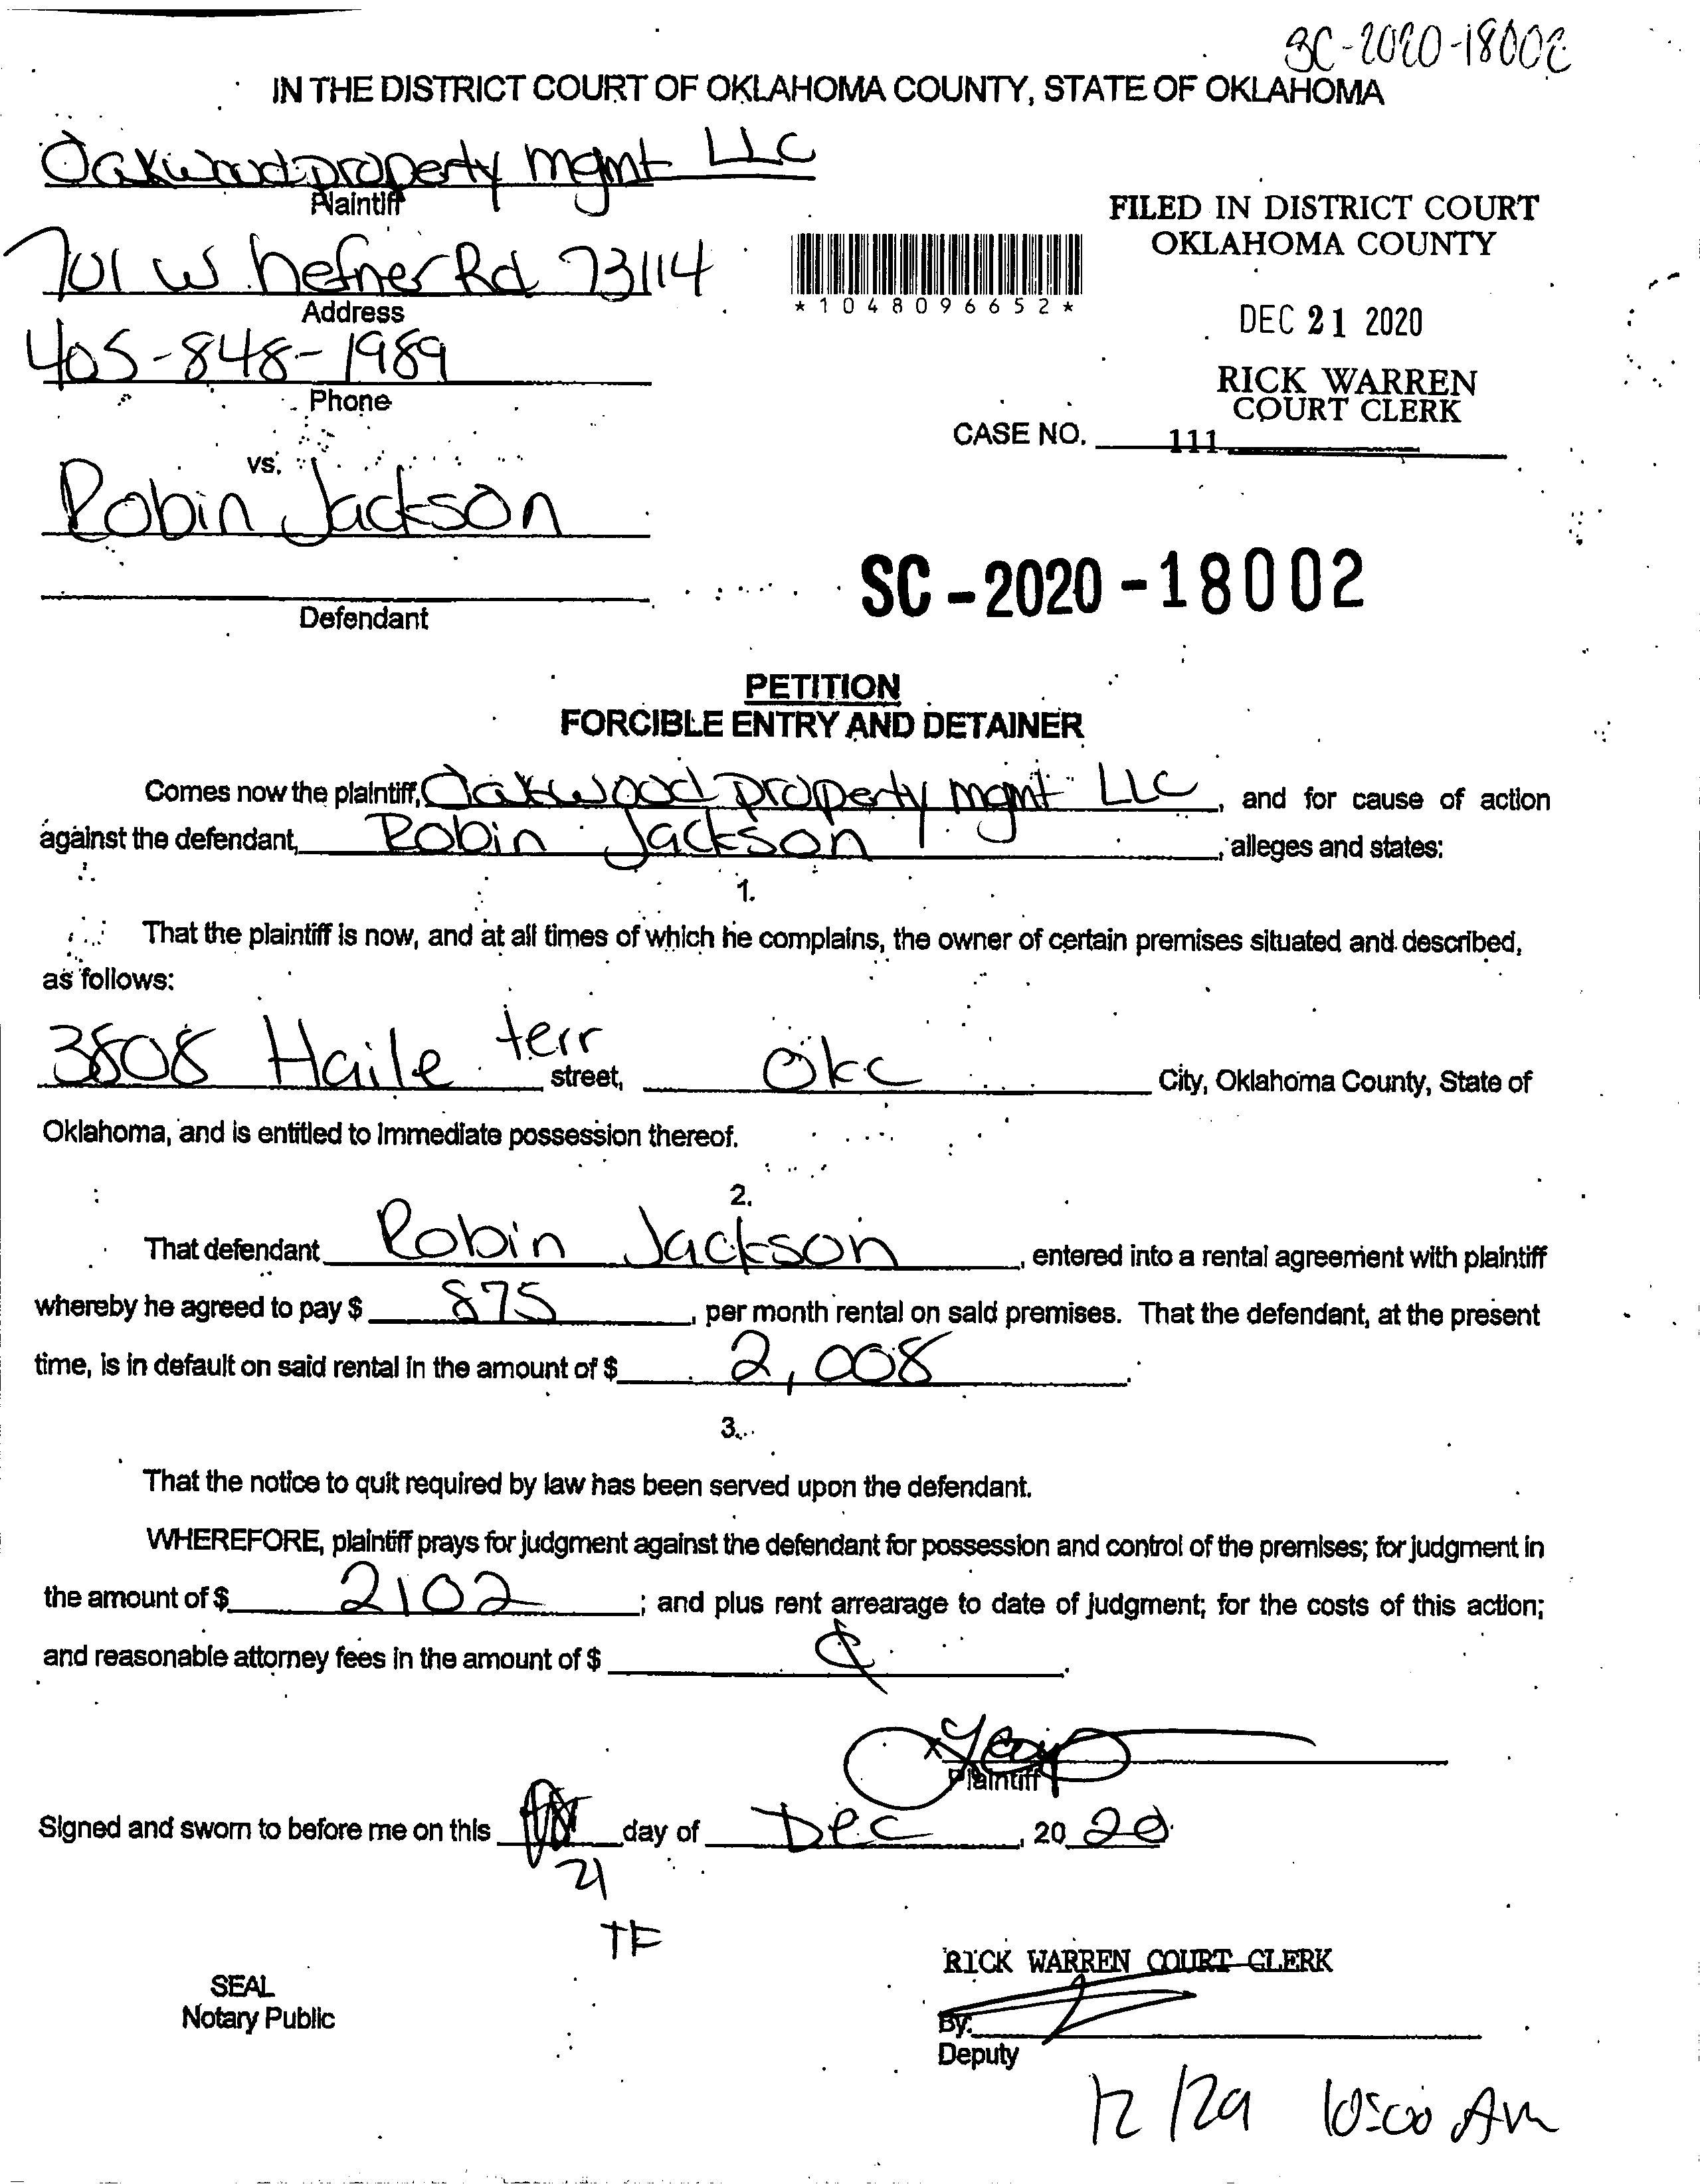 SC-2020-18002
IN THE DISTRICT COURT OF OKLAHOMA COUNTY, STATE OF OKLAHOMA
Oakwood property mgmt LLC
Plaintiff
701 W hefner Rd 73114
Address
405-848-1989
Phone
FILED IN DISTRICT COURT
OKLAHOMA COUNTY
*1048096652*
DEC 21 2020
RICK WARREN
COURT CLERK
CASE NO. 111
vs.
Robin Jackson
Defendant
SC-2020-18002
PETITION
FORCIBLE ENTRY AND DETAINER
Comes now the plaintiff, Oakwood property mgmt LLC, and for cause of action
against the defendant, Robin Jackson, alleges and states:
1.
That the plaintiff is now, and at all times of which he complains, the owner of certain premises situated and described,
as follows:
3808 Haile terr street, Okc City, Oklahoma County, State of
Oklahoma, and is entitled to immediate possession thereof.
2.
That defendant Robin Jackson, entered into a rental agreement with plaintiff
whereby he agreed to pay $ 875, per month rental on said premises. That the defendant, at the present
time, is in default on said rental in the amount of $ 2,008.
3.
That the notice to quit required by law has been served upon the defendant.
WHEREFORE, plaintiff prays for judgment against the defendant for possession and control of the premises; for judgment in
the amount of $ 2102; and plus rent arrearage to date of judgment; for the costs of this action;
and reasonable attorney fees in the amount of $
Plaintiff
Signed and sworn to before me on this day of Dec, 2020
21
TF
RICK WARREN COURT CLERK
SEAL
Notary Public
By:
Deputy
12/29 10:00 AM